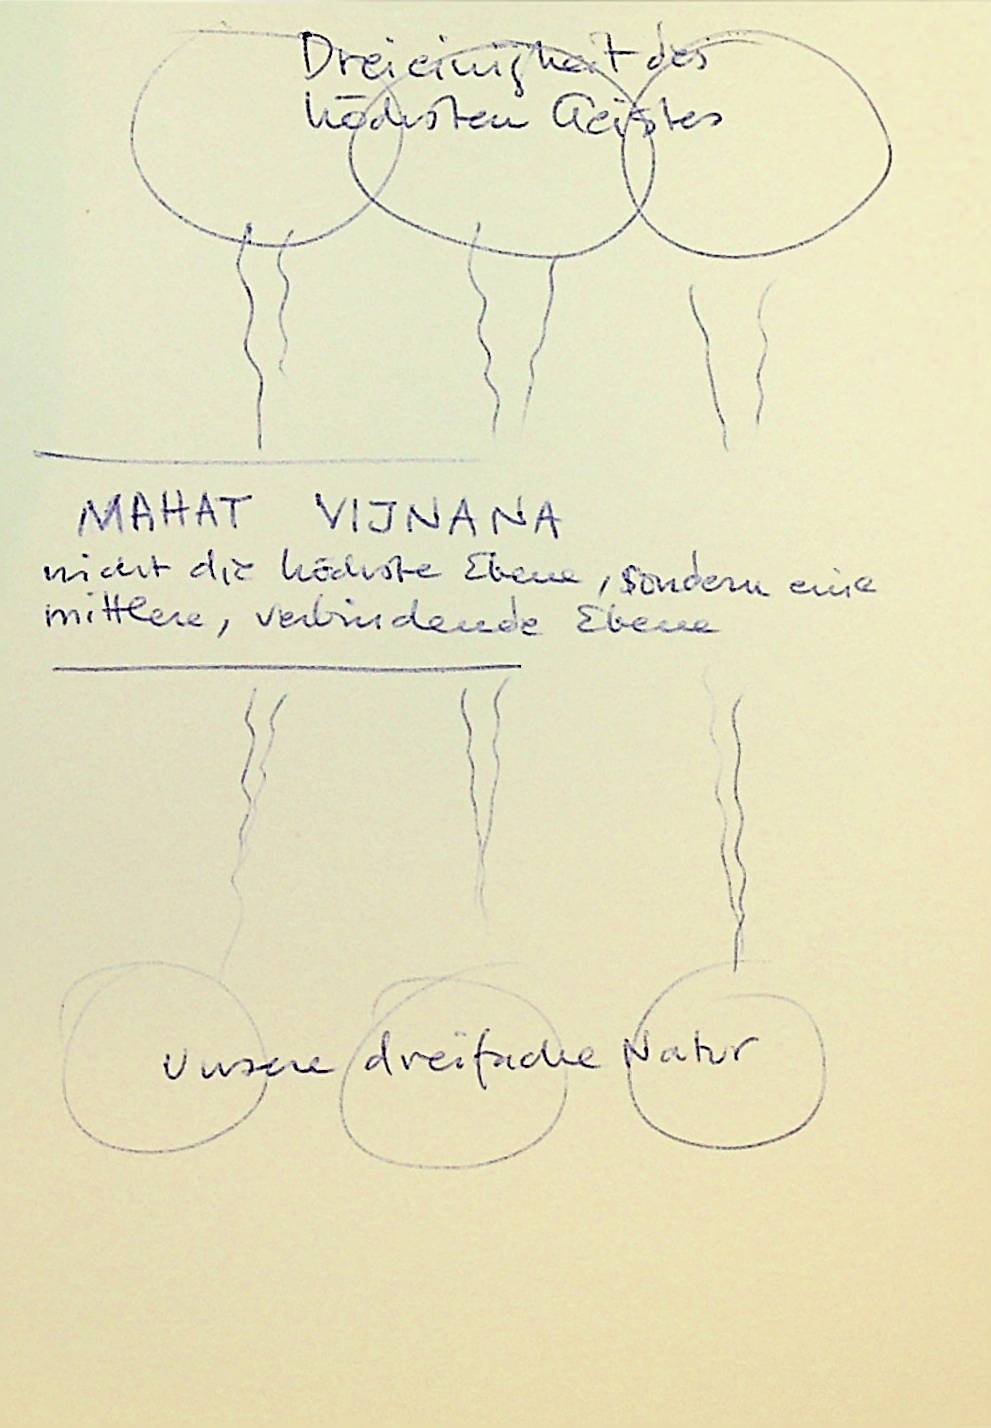 Dreieinigkeit des
höchsten Geistes
MAHAT VIJNANA
nicht die höchste Ebene, sondern eine
mittlere, verbindende Ebene
Unsere dreifache Natur